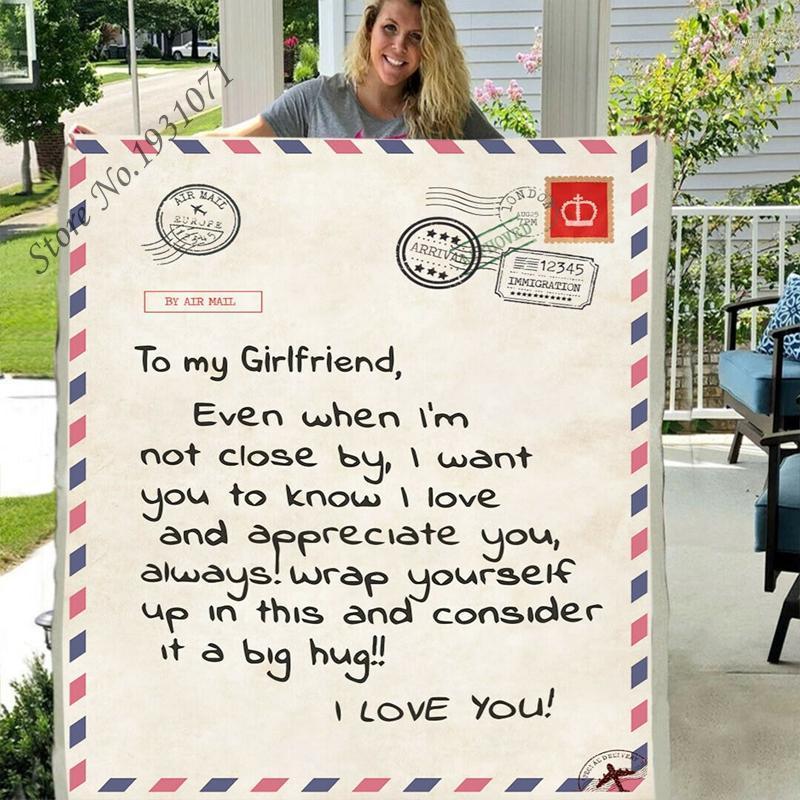 Store No.1931071
AIR MAIL
EUROPE
LONDON
AUG25
7PM
ARRIVAL
12345
IMMIGRATION
BY AIR MAIL
To my Girlfriend,
Even when I'm
not close by, I want
you to know I love
and appreciate you,
always! wrap yourself
up in this and consider
it a big hug!!
I LOVE YOU!
SPECIAL DELIVERY